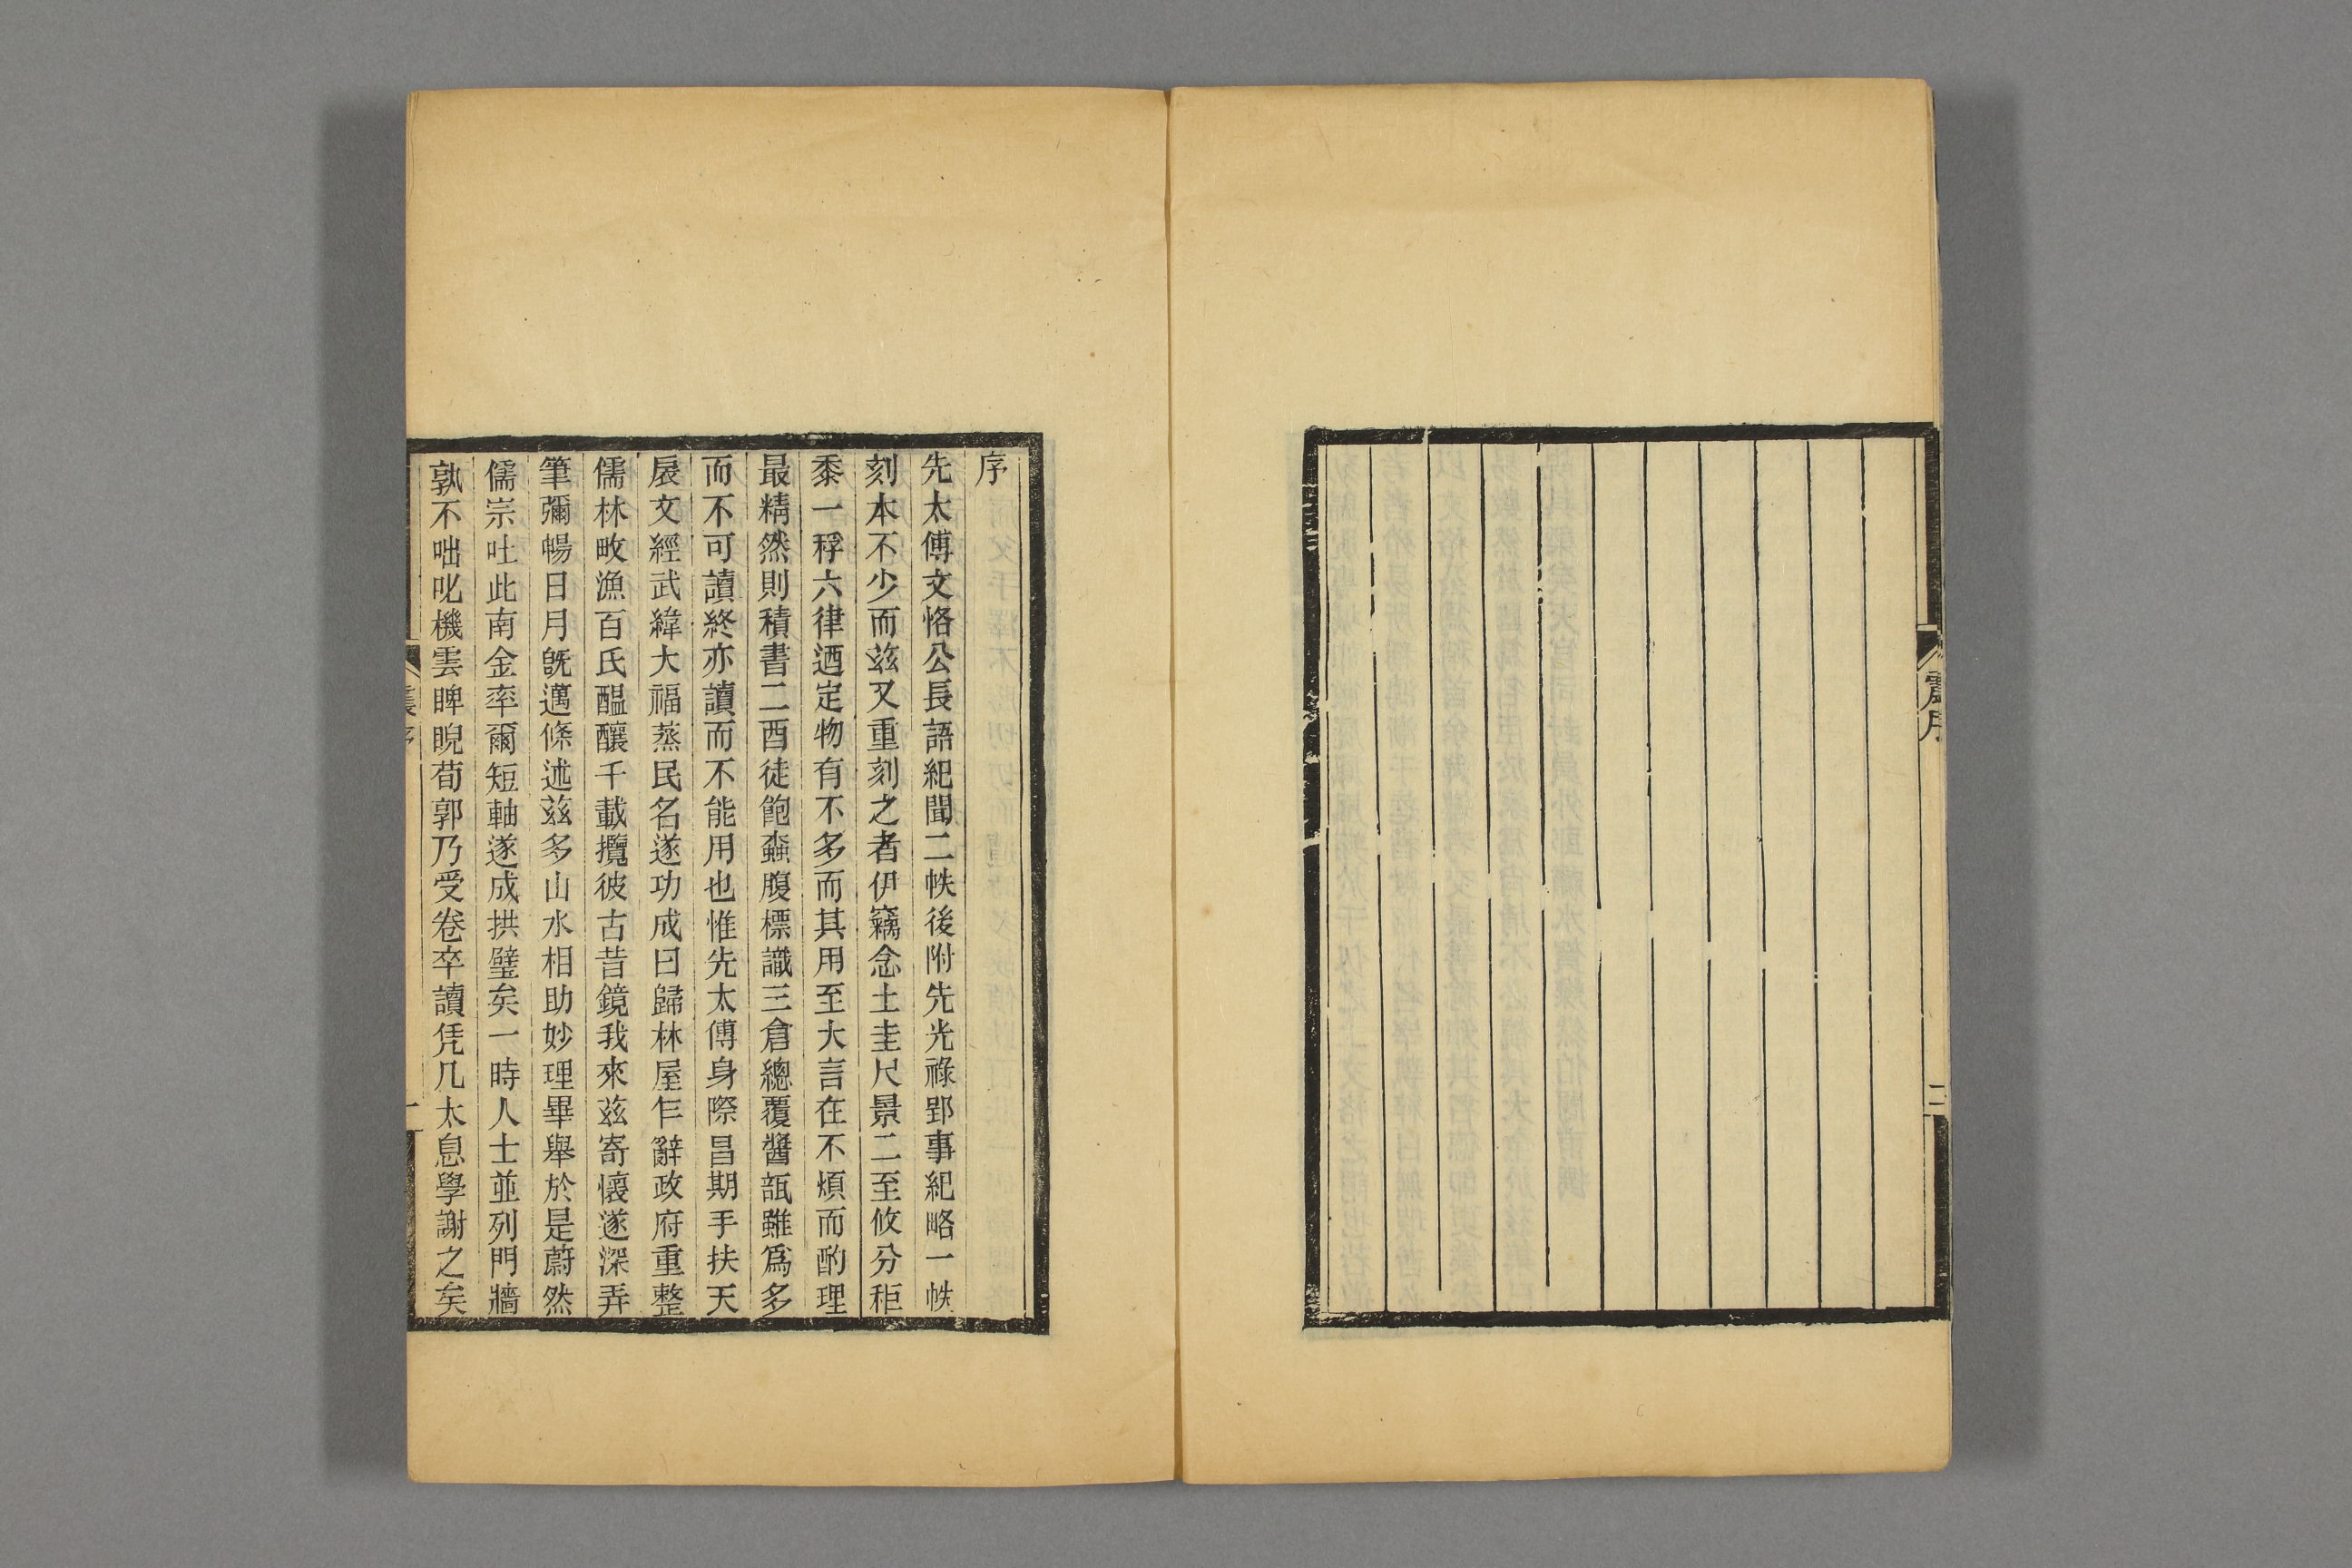 震序
二
序
先太傅文恪公長語紀聞二帙後附先光祿郢事紀略一帙
刻本不少而茲又重刻之者伊竊念土圭尺景二至攸分秬
黍一稃六律迺定物有不多而其用至大言在不煩而酌理
最精然則積書二酉徒飽蟫腹標識三倉總覆醬瓿雖爲多
而不可讀終亦讀而不能用也惟先太傅身際昌期手扶天
扆文經武緯大福蒸民名遂功成曰歸林屋乍辭政府重整
儒林畋漁百氏醞釀千載攬彼古昔鏡我來茲寄懷遂深弄
筆彌暢日月旣邁條述茲多山水相助妙理畢舉於是蔚然
儒宗吐此南金率爾短軸遂成拱璧矣一時人士並列門牆
孰不咄叱機雲睥睨荀郭乃受卷卒讀凭几太息學謝之矣
震序
一